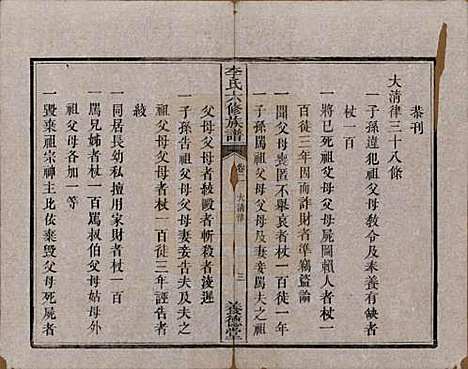 恭刊
大清律三十八條
一子孫違犯祖父母父母敎令及奉養有缺者
杖一百
一將已死祖父母父母屍圖賴人者杖一
百徒三年因而詐財者準竊盜論
一聞父母喪匿不舉哀者杖一百徒一年
一子孫罵祖父母父母及妻妾罵夫之祖
李氏六修族譜
卷二
大清律
三
養德堂
父母父母者絞毆者斬殺者凌遲
一子孫告祖父母父母及妻妾告夫之祖
父母父母者杖一百徒三年誣告者
絞
一同居長幼私擅用家財者杖一百
一罵兄姊者杖一百罵叔伯父母姑母外
祖父母各加一等
一毀棄祖宗神主比依棄毀父母死屍者